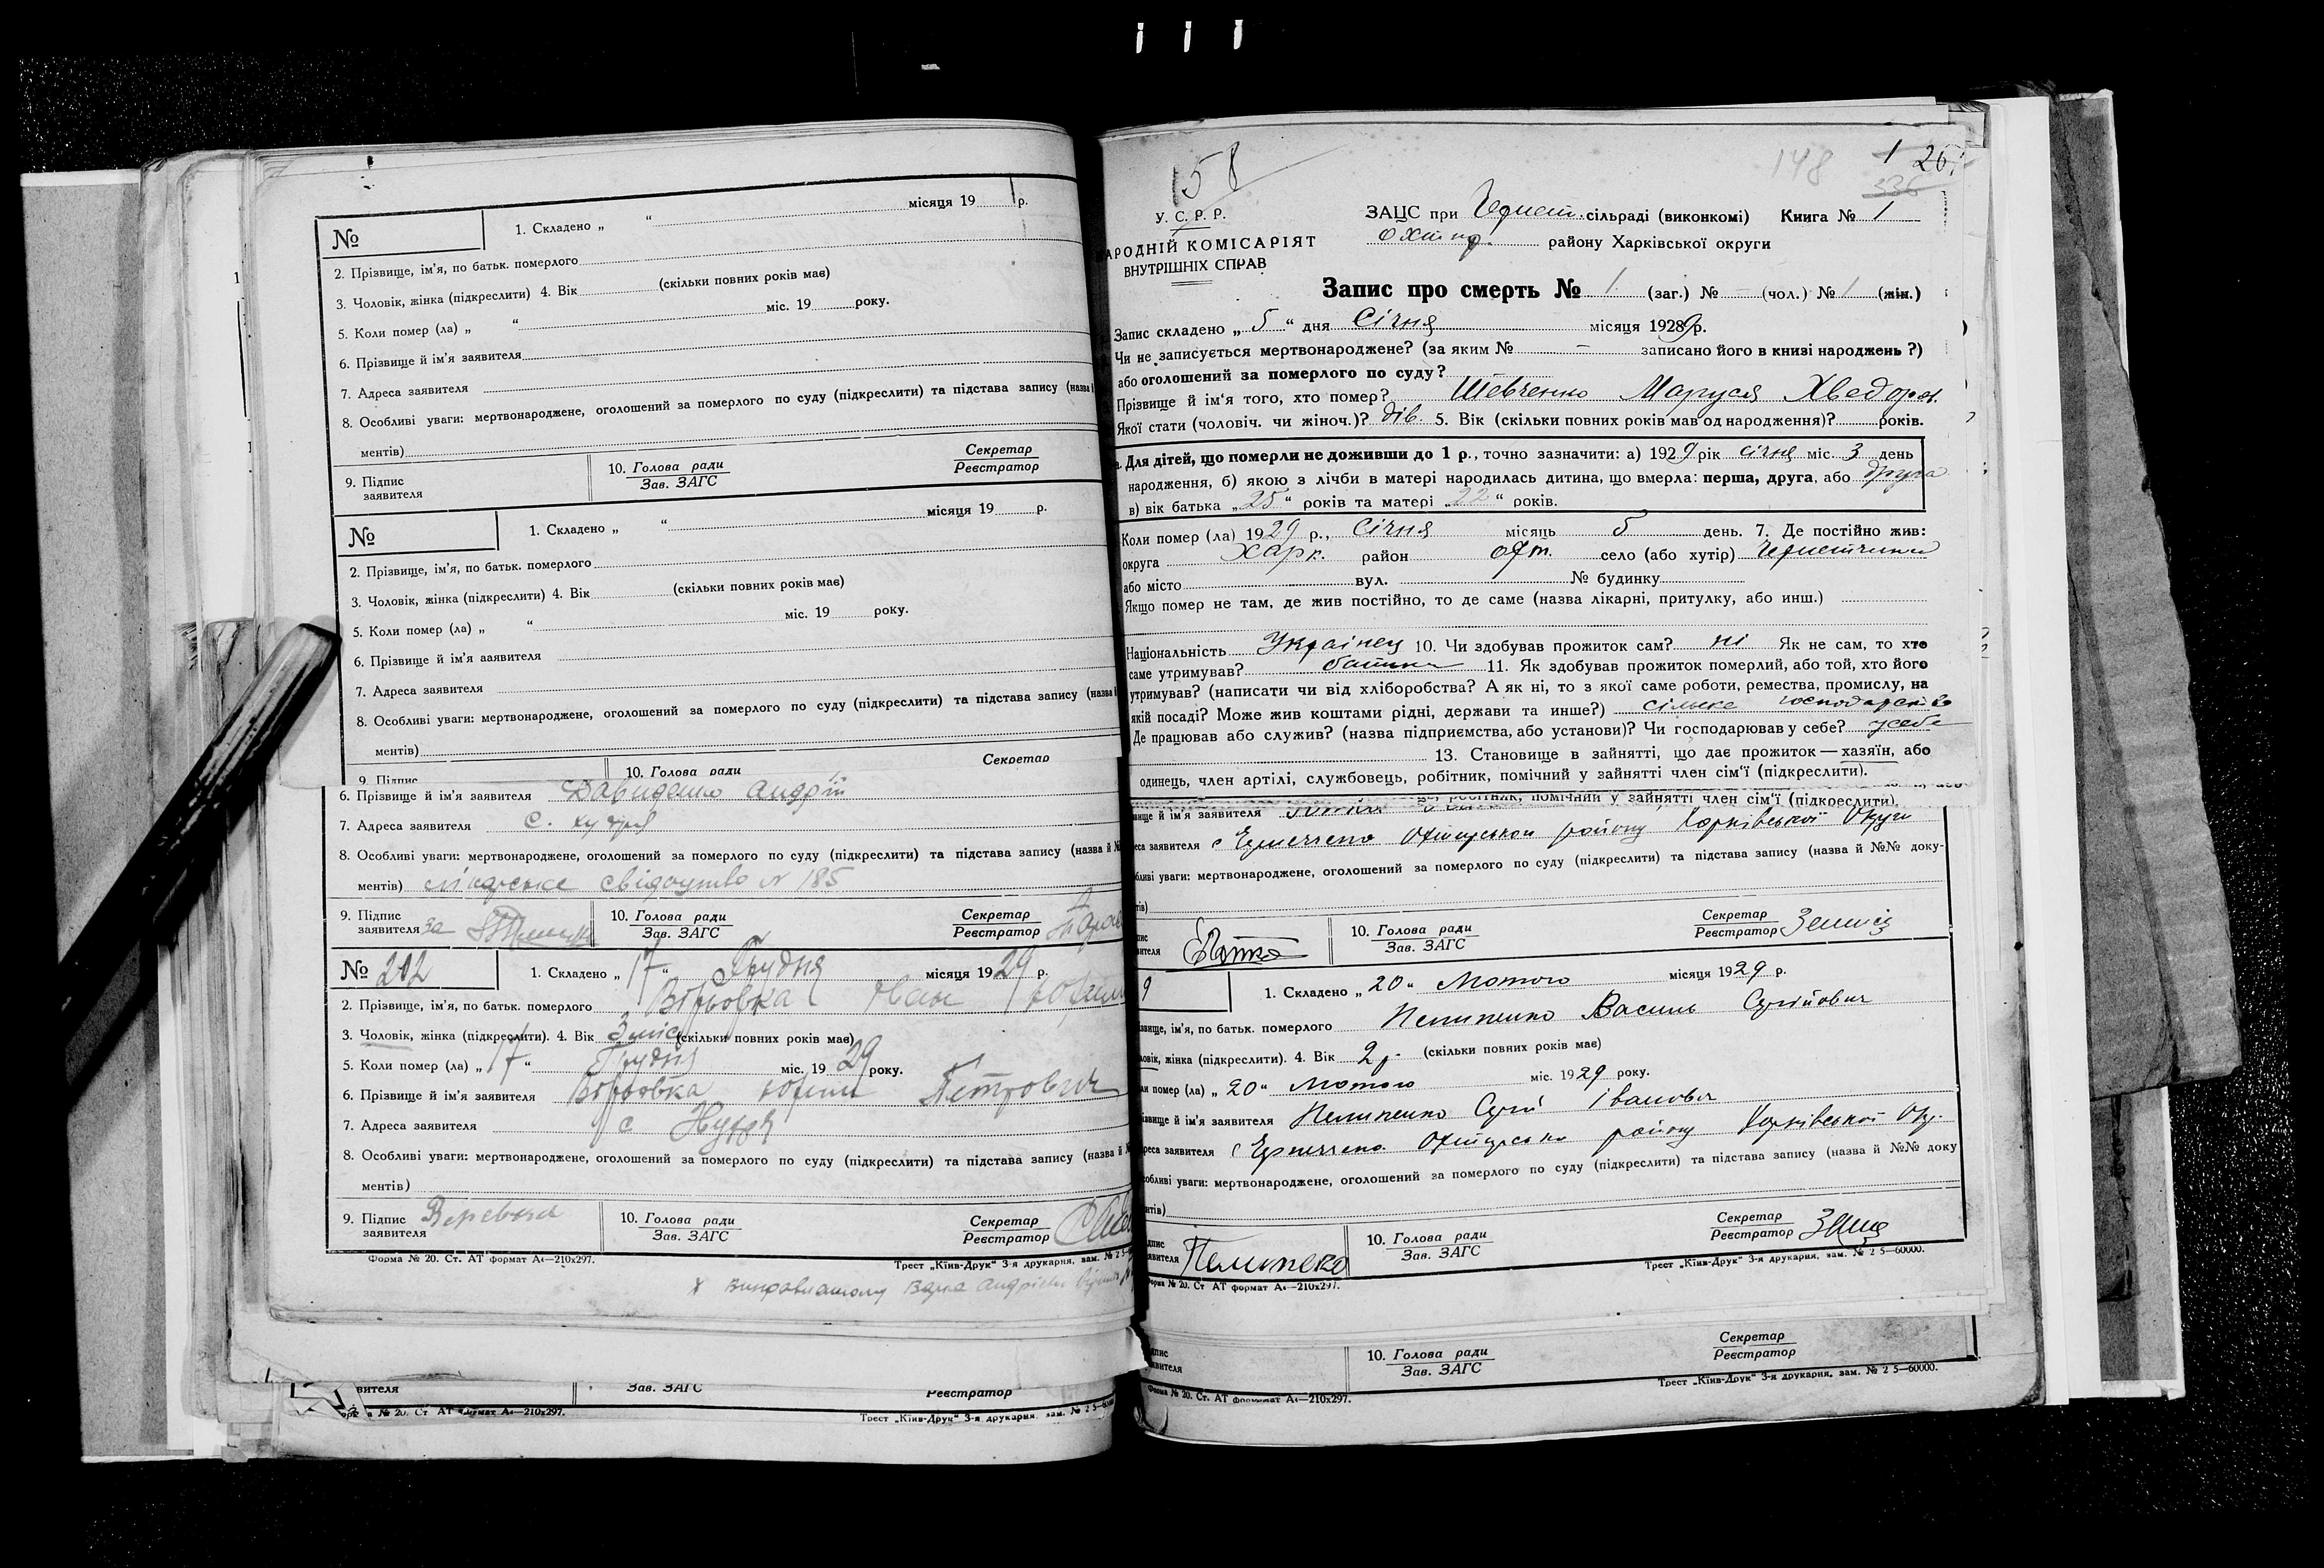 № 1. Складено „ “ місяця 19 р.
2. Прізвище, ім'я, по батьк. померлого
3. Чоловік, жінка (підкреслити) 4. Вік (скільки повних років має)
5. Коли помер (ла) „ “ міс. 19 року.
6. Прізвище й ім'я заявителя
7. Адреса заявителя
8. Особливі уваги: мертвонароджене, оголошений за померлого по суду (підкреслити) та підстава запису (назва
ментів)
9. Підпис заявителя 10. Голова ради Зав. ЗАГС Секретар Реєстратор
№ 1. Складено „ “ місяця 19 р.
2. Прізвище, ім'я, по батьк. померлого
3. Чоловік, жінка (підкреслити) 4. Вік (скільки повних років має)
5. Коли помер (ла) „ “ міс. 19 року.
6. Прізвище й ім'я ааявителя
7. Адреса заявителя
8. Особливі уваги: мертвонароджене, оголошений за померлого по суду (підкреслити) та підстава запису (назва
ментів)
9. Підпис 10. Голова ради Секретар
6. Прізвище й ім'я заявителя Давиденко Андрій
7. Адреса заявителя с.
8. Особливі уваги: мертвонароджене, оголошений за померлого по суду (підкреслити) та підстава запису (назва й №
ментів) лікарське свідоцтво № 185
9. Підпис заявителя за 10. Голова ради Зав. ЗАГС Секретар Реєстратор
№ 202 1. Складено „17“ Грудня місяця 1929 р.
2. Прізвище, ім'я, по батьк. померлого Іван
3. Чоловік, жінка (підкреслити). 4. Вік 3 міс (скільки повних років має)
5. Коли помер (ла) „17“ Грудня міс. 1929 року.
6. Прізвище й ім'я заявителя Петрович
7. Адреса заявителя с
8. Особливі уваги: мертвонароджене, оголошений за померлого по суду (підкреслити) та підстава запису (назва й №
ментів)
9. Підпис заявителя 10. Голова ради Зав. ЗАГС Секретар Реєстратор
Форма № 20. Ст. АТ формат А4—210х297. Трест „Київ-Друк“ 3-я друкарня, зам. № 2 5
вителя Зав. ЗАГС Реєстратор
№ 20. Ст АТ формат А4—210х297. Трест „Київ-Друк“ 3-я друкарня, зам. № 2 5—
58 148 1 26
336
У. С. Р. Р. ЗАЦС при Чернет. сільраді (виконкомі) Книга № 1
АРОДНІЙ КОМІСАРІЯТ Охтир. району Харківської округи
ВНУТРІШНІХ СПРАВ
Запис про смерть № 1 (заг.) № – (чол.) № 1 (жін.)
Запис складено „5“ дня Січня місяця 1929 р.
Чи не записується мертвонароджене? (за яким № – записано його в книзі народжень ?)
або оголошений за померлого по суду?
Прізвище й ім'я того, хто помер? Шевченко Маруся Хведоров.
Якої стати (чоловіч. чи жіноч.)? дів. 5. Вік (скільки повних років мав од народження)? років.
Для дітей, що померли не доживши до 1 р., точно зазначити: а) 1929 рік січня міс. 3 день
народження, б) якою з лічби в матері народилась дитина, що вмерла: перша, друга, або друга
в) вік батька „25“ років та матері „22“ років.
Коли помер (ла) 1929 р., Січня місяць 5 день. 7. Де постійно жив:
округа Харк. район Охт. село (або хутір) Чернеччина
або місто вул. № будинку
Якщо помер не там, де жив постійно, то де саме (назва лікарні, притулку, або инш.)
Національність Українец 10. Чи здобував прожиток сам? ні Як не сам, то хто
саме утримував? батько 11. Як здобував прожиток померлий, або той, хто його
утримував? (написати чи від хліборобства? А як ні, то з якої саме роботи, ремества, промислу, на
якій посаді? Може жив коштами рідні, держави та инше?) сільске господарство
Де працював або служив? (назва підприємства, або установи)? Чи господарював у себе? у себе
13. Становище в зайнятті, що дає прожиток — хазяїн, або
одинець, член артілі, службовець, робітник, помічний у зайнятті член сім'ї (підкреслити).
робітник, помічний у зайнятті член сім'ї (підкреслити).
вище й ім'я заявителя
еса заявителя с Чернеччена Охтирськой району Харківської Округи
бливі уваги: мертвонароджене, оголошений за померлого по суду (підкреслити) та підстава запису (назва й №№ доку-
тів)
пис вителя 10. Голова ради Зав. ЗАГС Секретар Реєстратор
9 1. Складено „20“ Лютого місяця 1929 р.
звище, ім'я, по батьк. померлого Пелипенко Василь Сергійович
ловік, жінка (підкреслити). 4. Вік 2 р. (скільки повних років має)
ли помер (ла) „20“ Лютого міс. 1929 року.
ізвище й ім'я заявителя Пелипенко Сергій Іванович
реса заявителя с Чернеччена Охтирсько району Харківської Окр.
собливі уваги: мертвонароджене, оголошений за померлого по суду (підкреслити) та підстава запису (назва й №№ доку
нтів)
дпис явителя Пелипеко 10. Голова ради Зав. ЗАГС Секретар Реєстратор
Форма № 20. Ст АТ формат А4—210х297. Трест „Київ-Друк“ 3-я друкарня, зам. № 2 5—60000.
дпис явителя 10. Голова ради Зав. ЗАГС Секретар Реєстратор
Форма № 20. Ст. АТ формат А4—210х297. Трест „Київ-Друк“ 3-я друкарня, зам. № 2 5—60000.